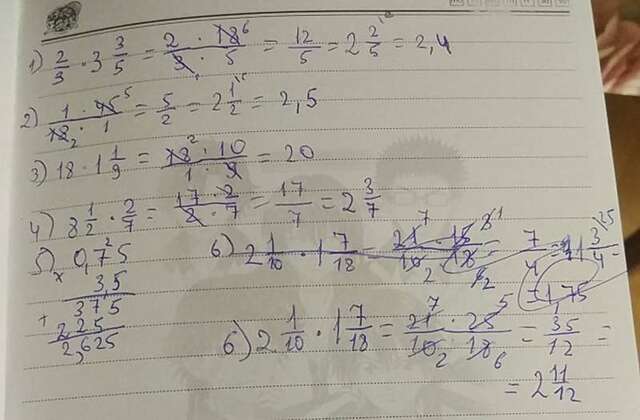 1) 2/3 · 3 3/5 = 2 · 18 6 / 3 1 · 5 = 12/5 = 2 2/5 = 2,4
2) 1 · 45 5 / 18 2 · 1 = 5/2 = 2 1/2 = 2,5
3) 18 · 1 1/9 = 18 2 · 10 / 1 · 9 = 20
4) 8 1/2 · 2/7 = 17 · 2 / 2 · 7 = 17/7 = 2 3/7
5) × 0,75
3,5
375
+ 225
2,625
6) 2 1/10 · 1 7/18 = 21 7 · 15 / 10 2 · 18 = 7/4 = 1 3/4 =
= 1,75
6) 2 1/10 · 1 7/18 = 21 7 · 25 5 / 10 2 · 18 6 = 35/12 =
= 2 11/12